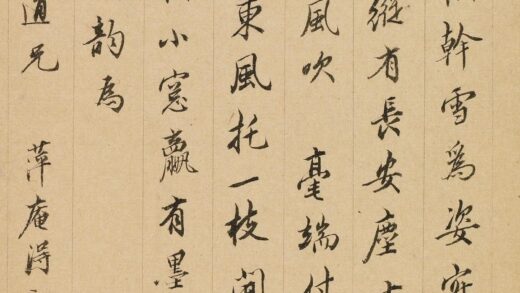 幹雪為姿
縱有長安塵
風吹　毫端付
東風托一枝閒
小窓贏有墨
韵為
道兄　萍庵得